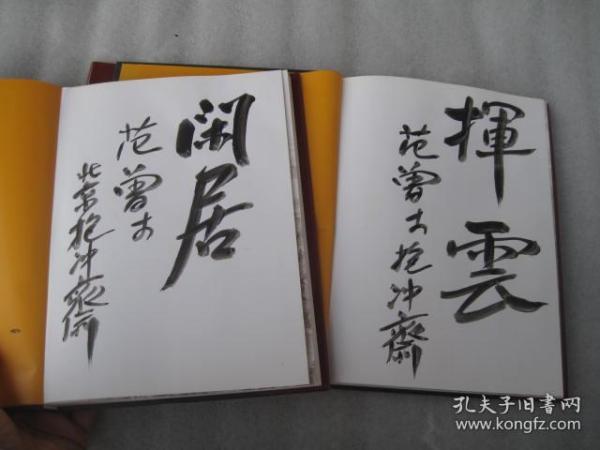 閑居
范曾
北京抱冲斋
揮雲
范曾 抱冲齋
孔夫子旧书网
www.kongfz.com